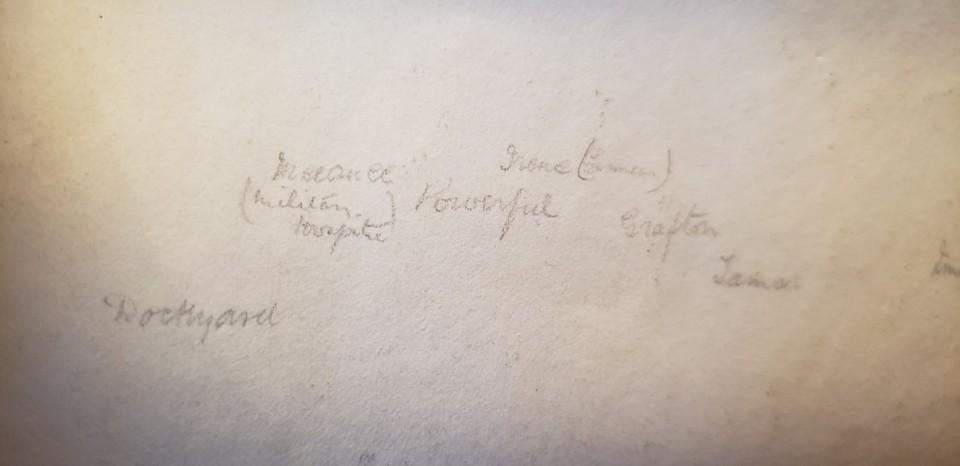 Meeanee
(Military
Hospital)
Powerful
Irene (German)
Grafton
Tamar
Dockyard